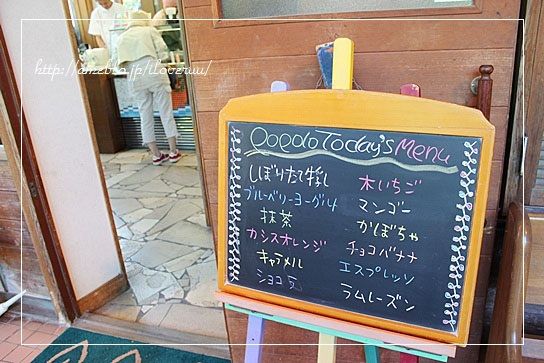 http://ameblo.jp/iloveruu/
POPOLO Today's Menu
しぼりたて牛乳
ブルーベリーヨーグルト
抹茶
カシスオレンジ
キャラメル
ショコラ
木いちご
マンゴー
かぼちゃ
チョコバナナ
エスプレッソ
ラムレーズン